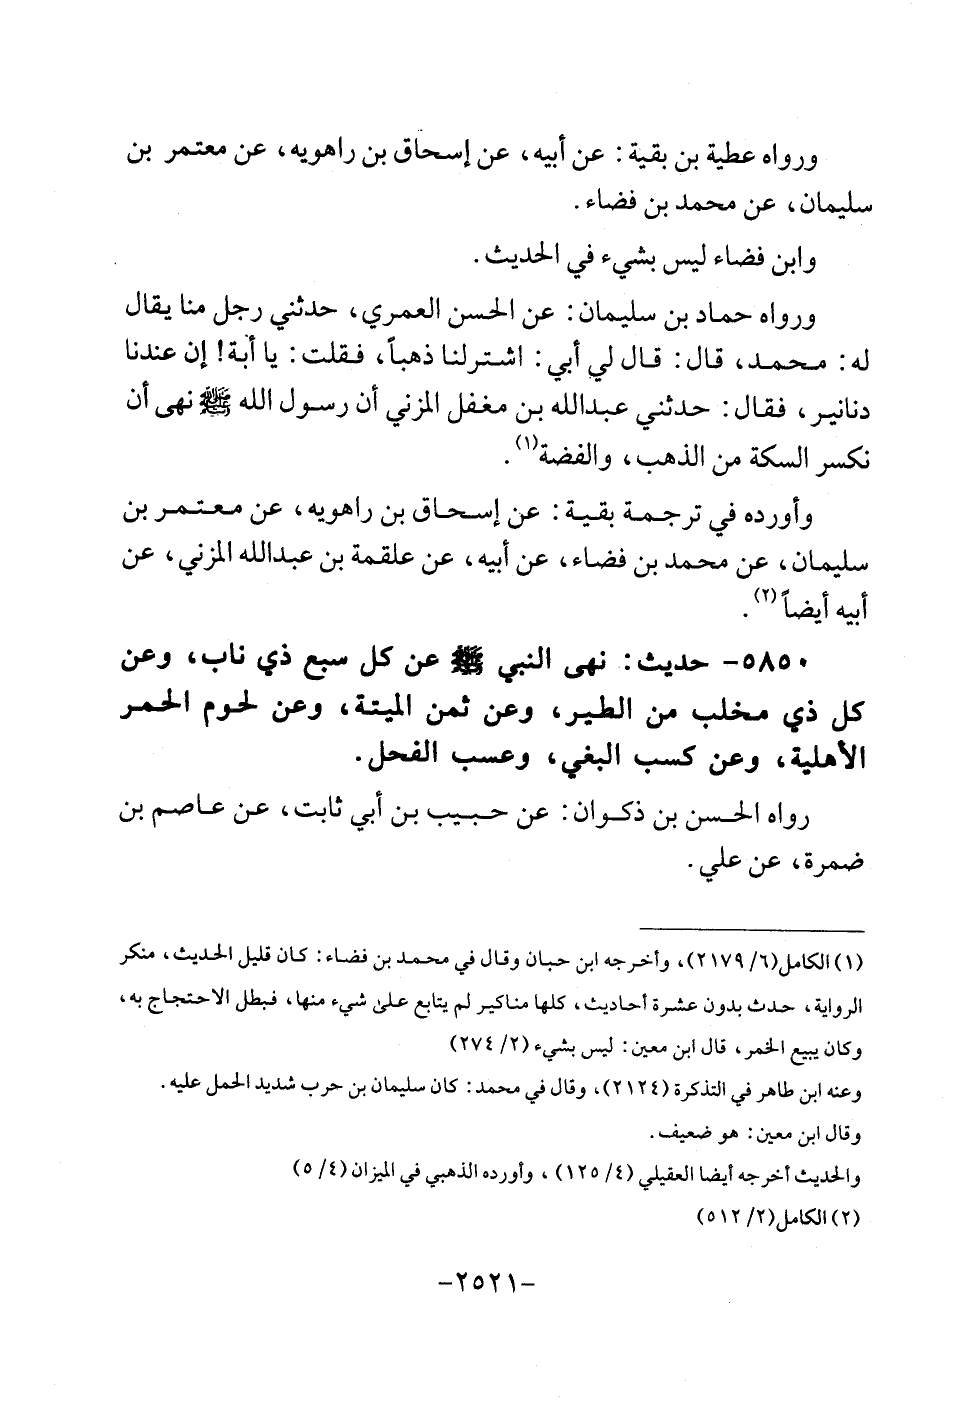 ورواه عطية بن بقية: عن أبيه، عن إسحاق بن راهويه، عن معتمر بن
سليمان، عن محمد بن فضاء.
وابن فضاء ليس بشيء في الحديث.
ورواه حماد بن سليمان: عن الحسن العمري، حدثني رجل منا يقال
له: محمد، قال: قال لي أبي: اشتر لنا ذهباً، فقلت: يا أبة! إن عندنا
دنانير، فقال: حدثني عبدالله بن مغفل المزني أن رسول الله ﷺ نهى أن
نكسر السكة من الذهب، والفضة(١).
وأورده في ترجمة بقية: عن إسحاق بن راهويه، عن معتمر بن
سليمان، عن محمد بن فضاء، عن أبيه، عن علقمة بن عبدالله المزني، عن
أبيه أيضاً(٢).
٥٨٥٠- حديث: نهى النبي ﷺ عن كل سبع ذي ناب، وعن
كل ذي مخلب من الطير، وعن ثمن الميتة، وعن لحوم الحمر
الأهلية، وعن كسب البغي، وعسب الفحل.
رواه الحسن بن ذكوان: عن حبيب بن أبي ثابت، عن عاصم بن
ضمرة، عن علي.
(١) الكامل(٦/ ٢١٧٩)، وأخرجه ابن حبان وقال في محمد بن فضاء: كان قليل الحديث، منكر
الرواية، حدث بدون عشرة أحاديث، كلها مناكير لم يتابع على شيء منها، فبطل الاحتجاج به،
وكان يبيع الخمر، قال ابن معين: ليس بشيء (٢/ ٢٧٤)
وعنه ابن طاهر في التذكرة (٢١٢٤)، وقال في محمد: كان سليمان بن حرب شديد الحمل عليه.
وقال ابن معين: هو ضعيف.
والحديث أخرجه أيضا العقيلي (٤/ ١٢٥) ، وأورده الذهبي في الميزان (٤/ ٥)
(٢) الكامل(٢/ ٥١٢)
-٢٥٢١-